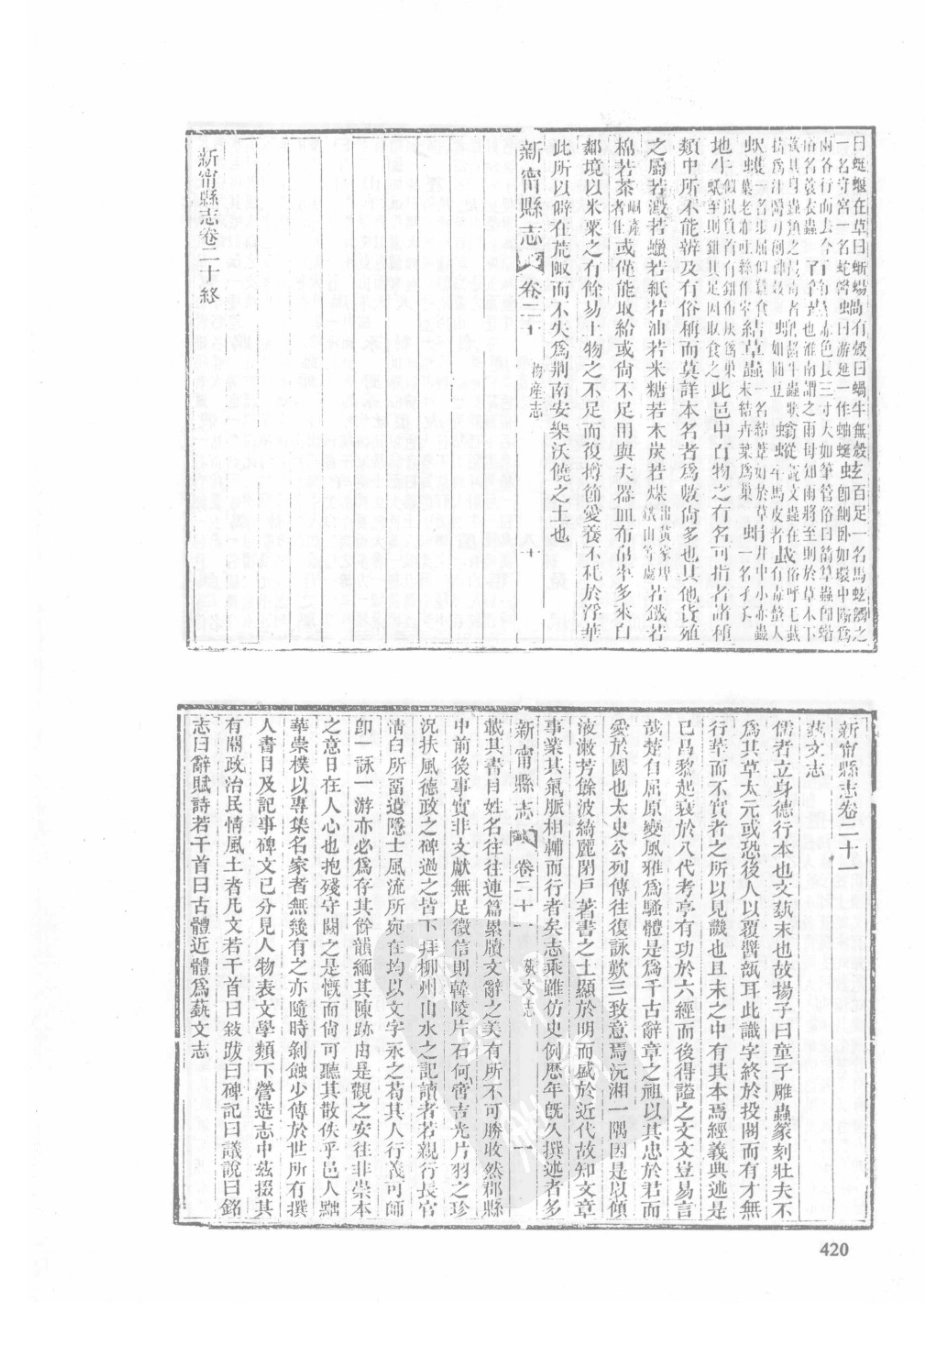 曰蝘蜓在草曰蜥蜴尚有殼曰蝸牛無殼
百足一名馬蚿
一名守宮一名蛇
曰游延一作蚰蜒
即
臥如環中斷為
兩各行而去今
赤色長三寸大如筆管俗曰
俗名蓑衣蟲
也淮南謂之雨母知雨將至則於草木下
蛷
一名
結草蟲
一名結葦好於草
末結卉葉為巢
井中小赤蟲
一名孑孓
地牛
似鼠負
有鉗
蟻至則鉗其足因取食之
此邑中百物之有名可指者諸種
類中所不能辨及有俗稱而莫詳本名者為數尚多也其他貨殖
之屬若澱若蠟若紙若油若米糖若木炭若煤
出黃家
鐵山等處
若鐵若
棉若茶
峒產者佳
或僅能取給或尚不足用與夫器皿布帛率多來自
鄰境以米粟之有餘易土物之不足而復撙節愛養不秏於浮華
此所以僻在荒陬而不失為荆南安樂沃饒之土也
新甯縣志 卷二十 物產志 十
新甯縣志卷二十終
新甯縣志卷二十一
藝文志
儒者立身德行本也文藝末也故揚子曰童子雕蟲篆刻壯夫不
為其草太元或恐後人以覆醬瓿耳此識字終於投閣而有才無
行華而不實者之所以見譏也且末之中有其本焉經義典述是
已昌黎起衰於八代考亭有功於六經而後得謚之文文豈易言
哉楚自屈原變風雅為騷體是為千古辭章之祖以其忠於君而
愛於國也太史公列傳往復詠歎三致意焉沅湘一隅因是以傾
液漱芳餘波綺麗閉戶著書之士顯於明而盛於近代故知文章
事業其氣脈相輔而行者矣志乘雖仿史例歷年旣久撰述者多
新甯縣志 卷二十一 藝文志 一
載其書目姓名往往連篇累牘文辭之美有所不可勝收然郡縣
中前後事實非文獻無足徵信則韓陵片石何啻吉光片羽之珍
況扶風德政之碑過之皆下拜柳州山水之記讀者若親行長官
清白所留遺隱士風流所宛在均以文字永之苟其人行義可師
卽一詠一游亦必為存其餘韻緬其陳跡由是觀之安往非崇本
之意日在人心也抱殘守闕之是慨而尙可聽其散佚乎邑人黜
華崇樸以專集名家者無幾有之亦隨時剝蝕少傳於世所有撰
人書目及記事碑文已分見人物表文學類下營造志中茲掇其
有關政治民情風土者凡文若干首曰敘跋曰碑記曰議說曰銘
志曰辭賦詩若干首曰古體近體為藝文志
420